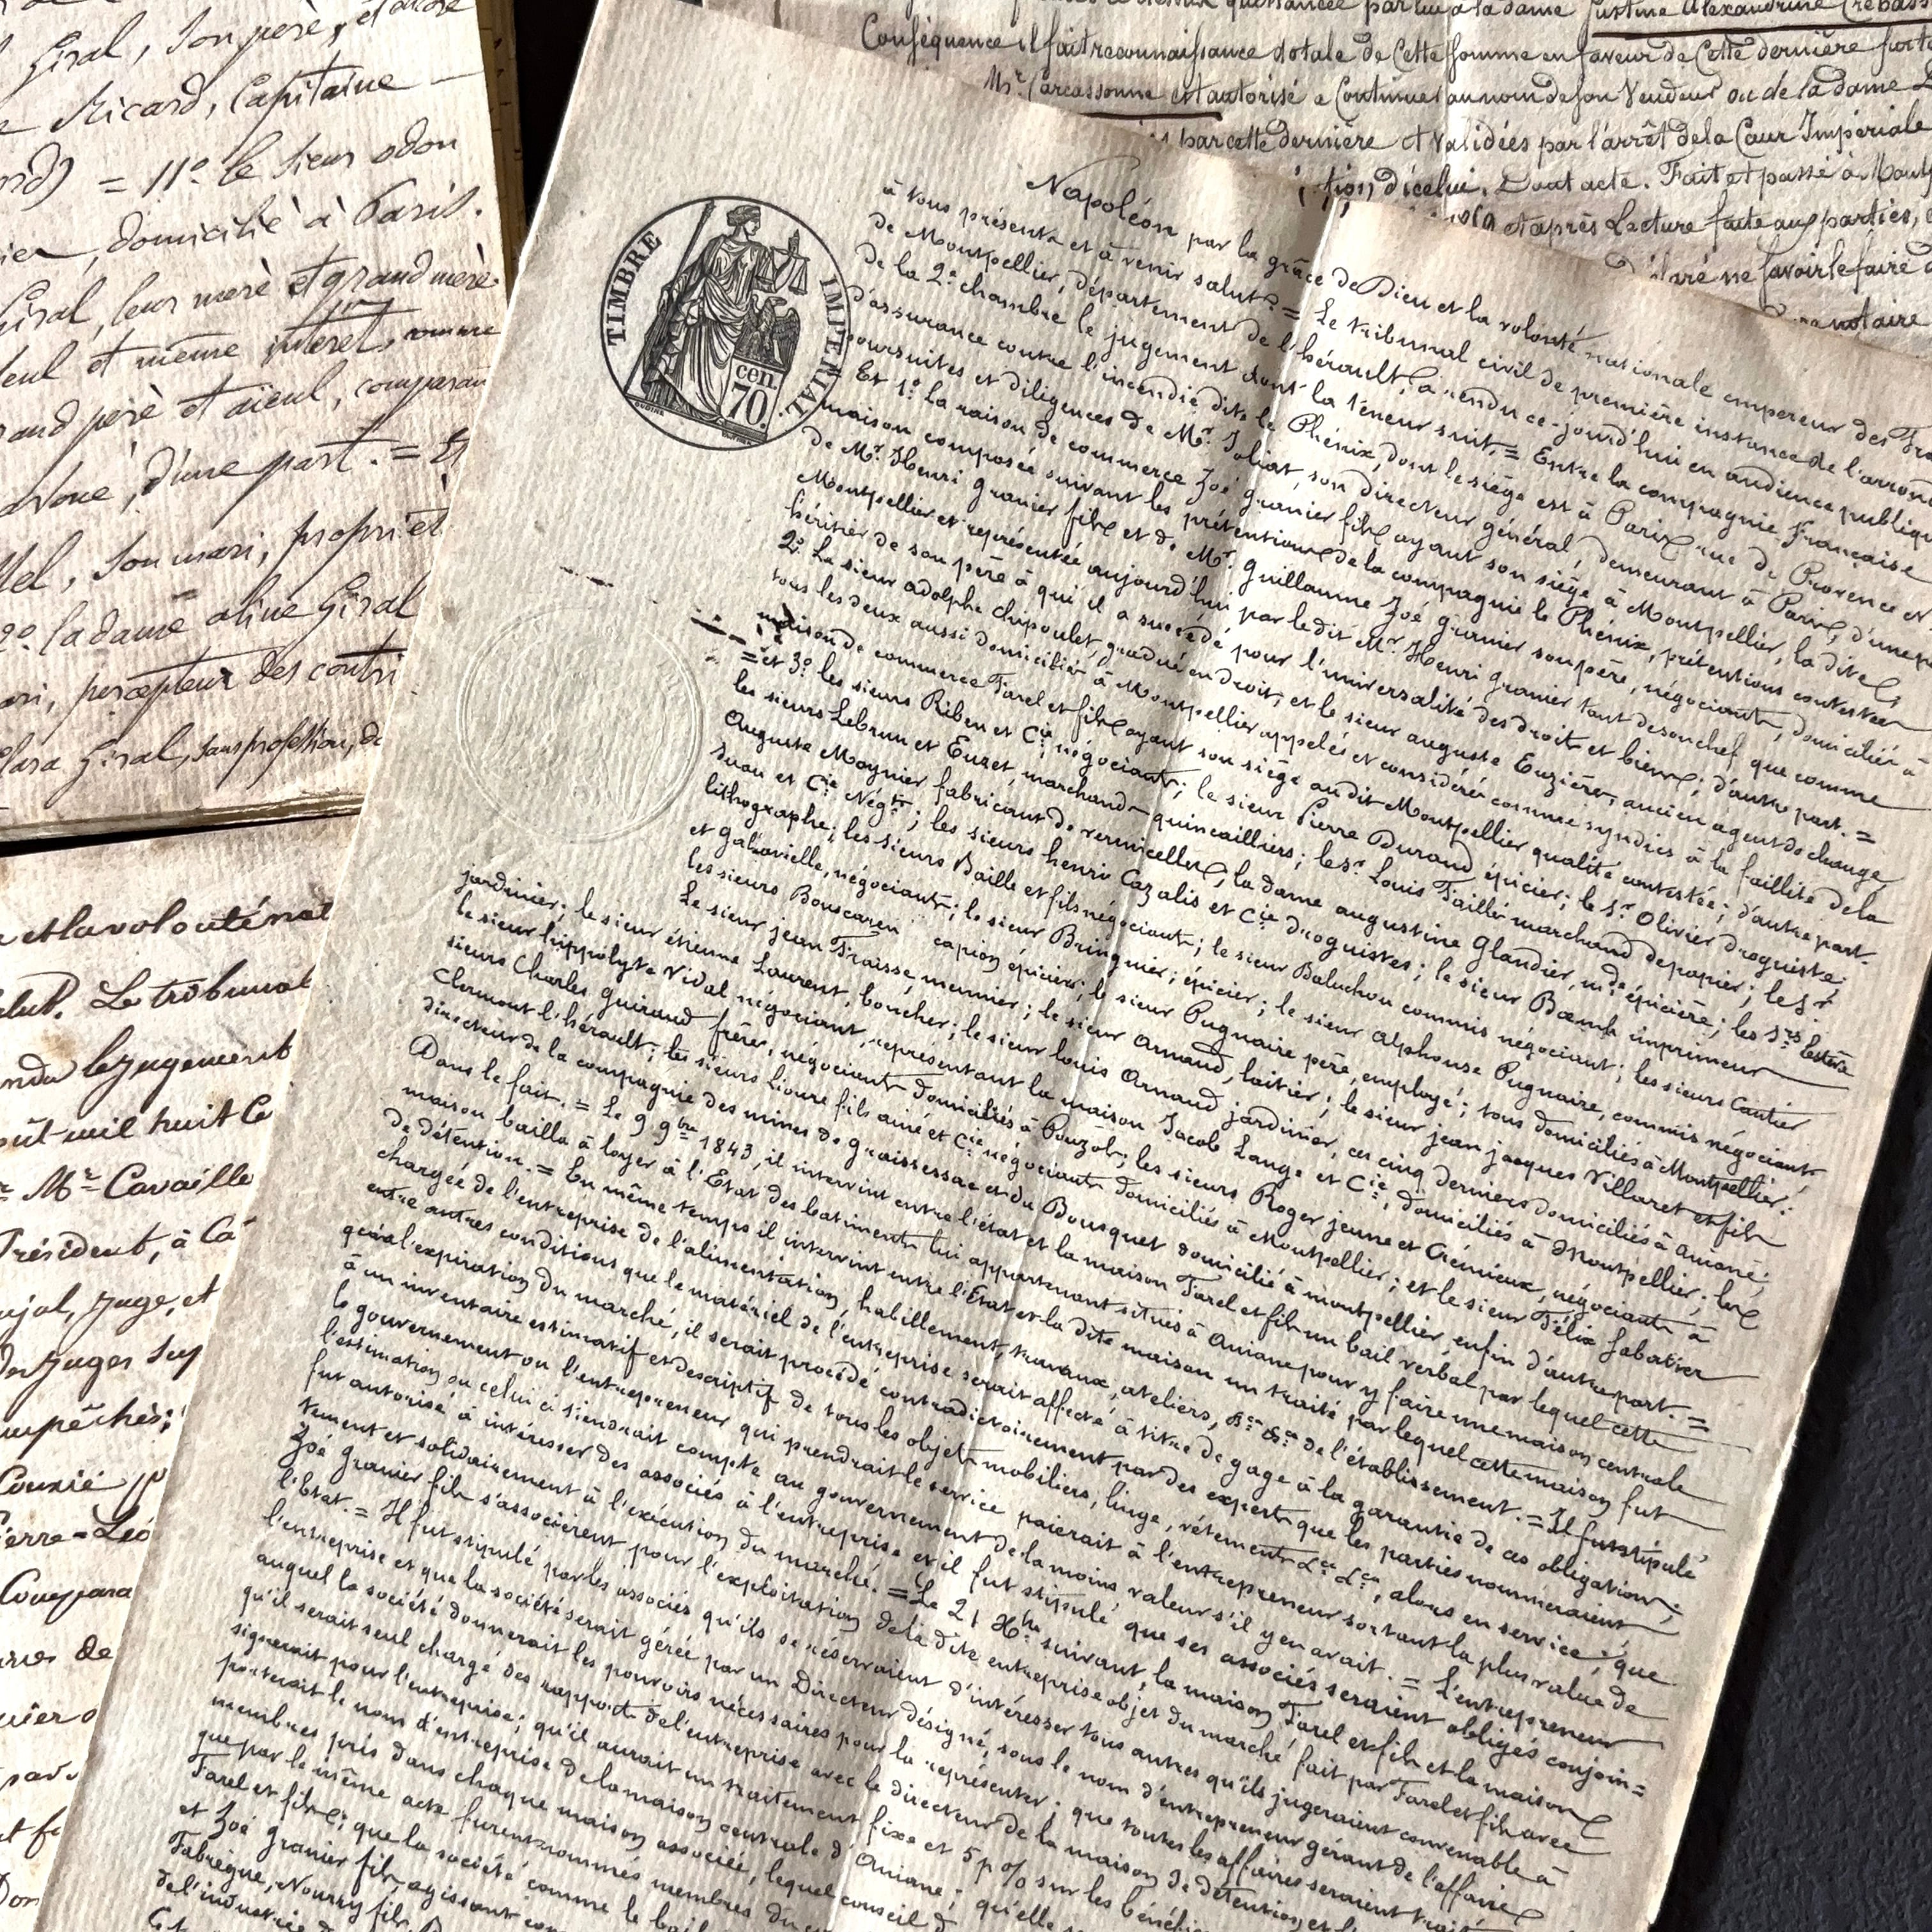 Giral, son père, et encore
Ricard, Capitaine
= 11° le sieur odon
domicilié à Paris.
Giral, leur mère et grand mère
seul et même intérêt, comme
grand père et aïeul, comparan
Avoué, d'une part. = Et
son mari, propriét
2° la dame aline Giral
percepteur des contri
Clara Giral, sans profession, de
quittancée par lui à la dame Justine Alexandrine Crebass
Conséquence il fait reconnaissance dotale de Cette somme en faveur de Cette dernière
Mr. Carcassonne est autorisé a Continuer au nom de son Vendeur ou de la dame
par cette dernière et validées par l'arrêt de la Cour Impériale
d'icelui. Dont acte. Fait et passé à Mont
et après Lecture faite aux parties,
déclaré ne savoir le faire
notaire
TIMBRE IMPÉRIAL
cen.
70.
Napoléon par la grâce de Dieu et la volonté nationale empereur des Fra
à tous présents et à venir salut. = Le tribunal civil de première instance de l'arrond
de Montpellier, département de l'hérault, a rendu ce-jourd'hui en audience publique
de la 2e chambre le jugement dont la teneur suit. = Entre la compagnie Française
d'assurance contre l'incendie dite le Phénix, dont le siège est à Paris rue de Provence n°
poursuites et diligences de Mr. Joliat, son directeur général, demeurant à Paris, d'une p
Et 1° La raison de commerce Zoé granier fils ayant son siège à Montpellier, la dite
maison composée suivant les prétentions de la compagnie le Phénix, prétentions contestées
de Mr. Henri granier fils et de Mr. Guillaume Zoé granier son père, négociants, domiciliés à
Montpellier et représentée aujourd'hui par le dit Mr. Henri granier tant de son chef que comme
héritier de son père à qui il a succédé pour l'universalité des droits et biens; d'autre part. =
2° Le sieur adolphe Chipoulet, gradué en droit, et le sieur auguste Euzière, ancien agent de change,
tous les deux aussi domiciliés à Montpellier appelés et considérés comme syndics à la faillite de la
maison de commerce Farel et fils ayant son siège audit Montpellier qualité contestée; d'autre part.
= et 3° les sieurs Riben et Cie négociants; le sieur Pierre Durand, épicier; le sr. Olivier droguiste;
les sieurs Lebrun et Euzet, marchands quincailliers; le sr. Louis Taillé marchand de papier; le sr.
Auguste Moynier fabricant de vermicelles; la dame augustine Glandier, mde épicière; les srs Estève
Duau et Cie Négts; les sieurs henri Cazalis et Cie droguistes; le sieur Boehm imprimeur
lithographe; les sieurs Baille et fils négociants; le sieur Baluchou commis négociant; les sieurs Cantier
et Galavielle, négociants; le sieur Bringuier, épicier; le sieur Alphonse Pugnaire, commis négociant
les sieurs Bouscaren capion épiciers; le sieur Pugnaire père, employé; tous domiciliés à Montpellier.
Le sieur jean Fraisse, meunier; le sieur Arnaud, laitier; le sieur jean jacques Villaret et fils
jardinier; le sieur étienne Laurent, boucher; le sieur louis Arnaud jardinier, ces cinq derniers domiciliés à aniane;
le sieur hippolyte Vidal négociant, représentant la maison Jacob Lange et Cie, domiciliés à Montpellier; les
sieurs Charles guiraud frères, négociants domiciliés à Pouzols; les sieurs Roger jeune et Crémieux, négociants à
Clermont l'hérault; les sieurs Lioure fils ainé et Cie négociants domiciliés à Montpellier; et le sieur Félix Sabatier
directeur de la compagnie des mines de graissessac et du Bousquet domicilié à montpellier, enfin d'autre part. =
Dans le fait. = Le 9 9bre 1843, il intervint entre l'état et la maison Farel et fils un bail verbal par lequel cette
maison bailla à loyer à l'Etat des batiments lui appartenant situés à Aniane pour y faire une maison centrale
de détention. = En même temps il intervint entre l'Etat et la dite maison un traité par lequel cette maison fut
chargée de l'entreprise de l'alimentation, habillement, travaux, ateliers, &a &a de l'établissement. = Il fut stipulé
entre autres conditions que le matériel de l'entreprise serait affecté à titre de gage à la garantie de ces obligations;
qu'à l'expiration du marché, il serait procédé contradictoirement par des experts que les parties nommeraient
à un inventaire estimatif et descriptif de tous les objets mobiliers, linge, vêtements &a &a, alors en service; que
le gouvernement ou l'entrepreneur qui prendrait le service paierait à l'entrepreneur sortant la plus value de
l'estimation ou celui ci tiendrait compte au gouvernement de la moins valeur s'il y en avait. = L'entrepreneur
fut autorisé à intéresser des associés à l'entreprise et il fut stipulé que ses associés seraient obligés conjoin=
tement et solidairement à l'exécution du marché. = Le 21 Xbre suivant, la maison Farel et fils et la maison
Zoé granier fils s'associèrent pour l'exploitation de la dite entreprise objet du marché fait par Farel et fils avec
l'Etat. = Il fut stipulé par les associés qu'ils se réservaient d'intéresser tous autres qu'ils jugeraient convenable à
l'entreprise et que la société serait gérée par un Directeur désigné, sous le nom d'entrepreneur gérant de l'affaire
auquel la société donnerait les pouvoirs nécessaires pour la représenter; que toutes les affaires seraient
qu'il serait seul chargé des rapports de l'entreprise avec le directeur de la maison de détention, et
signerait pour l'entreprise; qu'il aurait un traitement fixe et 5 p % sur les bénéfi
porterait le nom d'entreprise de la maison centrale d'Aniane; qu'elle
membres pris dans chaque maison associée, lequel conseil d
que par le même acte furent nommés membres du
Farel et fils; que la société comme le bail
et Zoé granier fils agissant
Fabrègue, Nourry fils
de l'industrie
et la volonté nat
salut. Le tribunal
rendu le jugement
août mil huit Ce
Mr Cavaillé
Président, à
Pujol, juge, et
des juges sup
empêchés;
Pierre-Léo
Compara